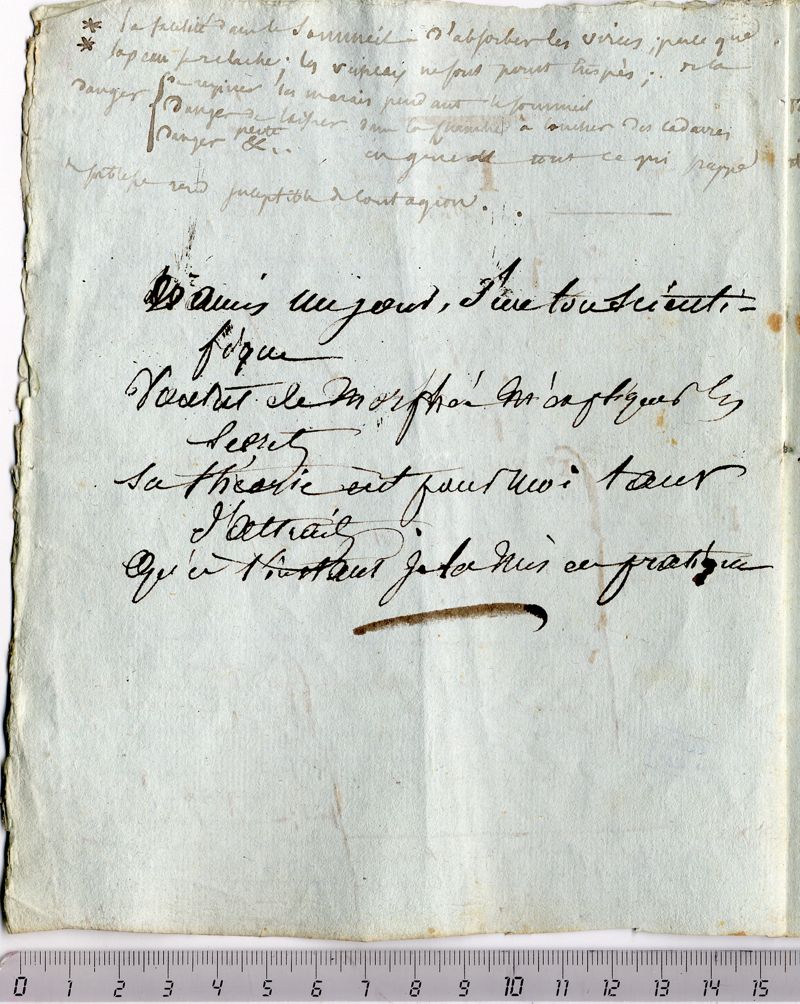 * la facilité dans le Sommeil d'absorber les virus ; parce que
* la peau se relache ; les vaisseaux ne sont point crispés ; de la
danger { de respirer les marais pendant le sommeil
danger de laisser dans la chambre à coucher des cadavres
danger peste &..
en général tout ce qui frappe
rend susceptible de contagion.
Damis un jour, d'une ton scienti-
fique
Voulut de Morphée m'expliquer les
secrets
Sa théorie eut pour moi tant
d'attraits
Qu'à l'instant je la mis en pratique
0 1 2 3 4 5 6 7 8 9 10 11 12 13 14 15